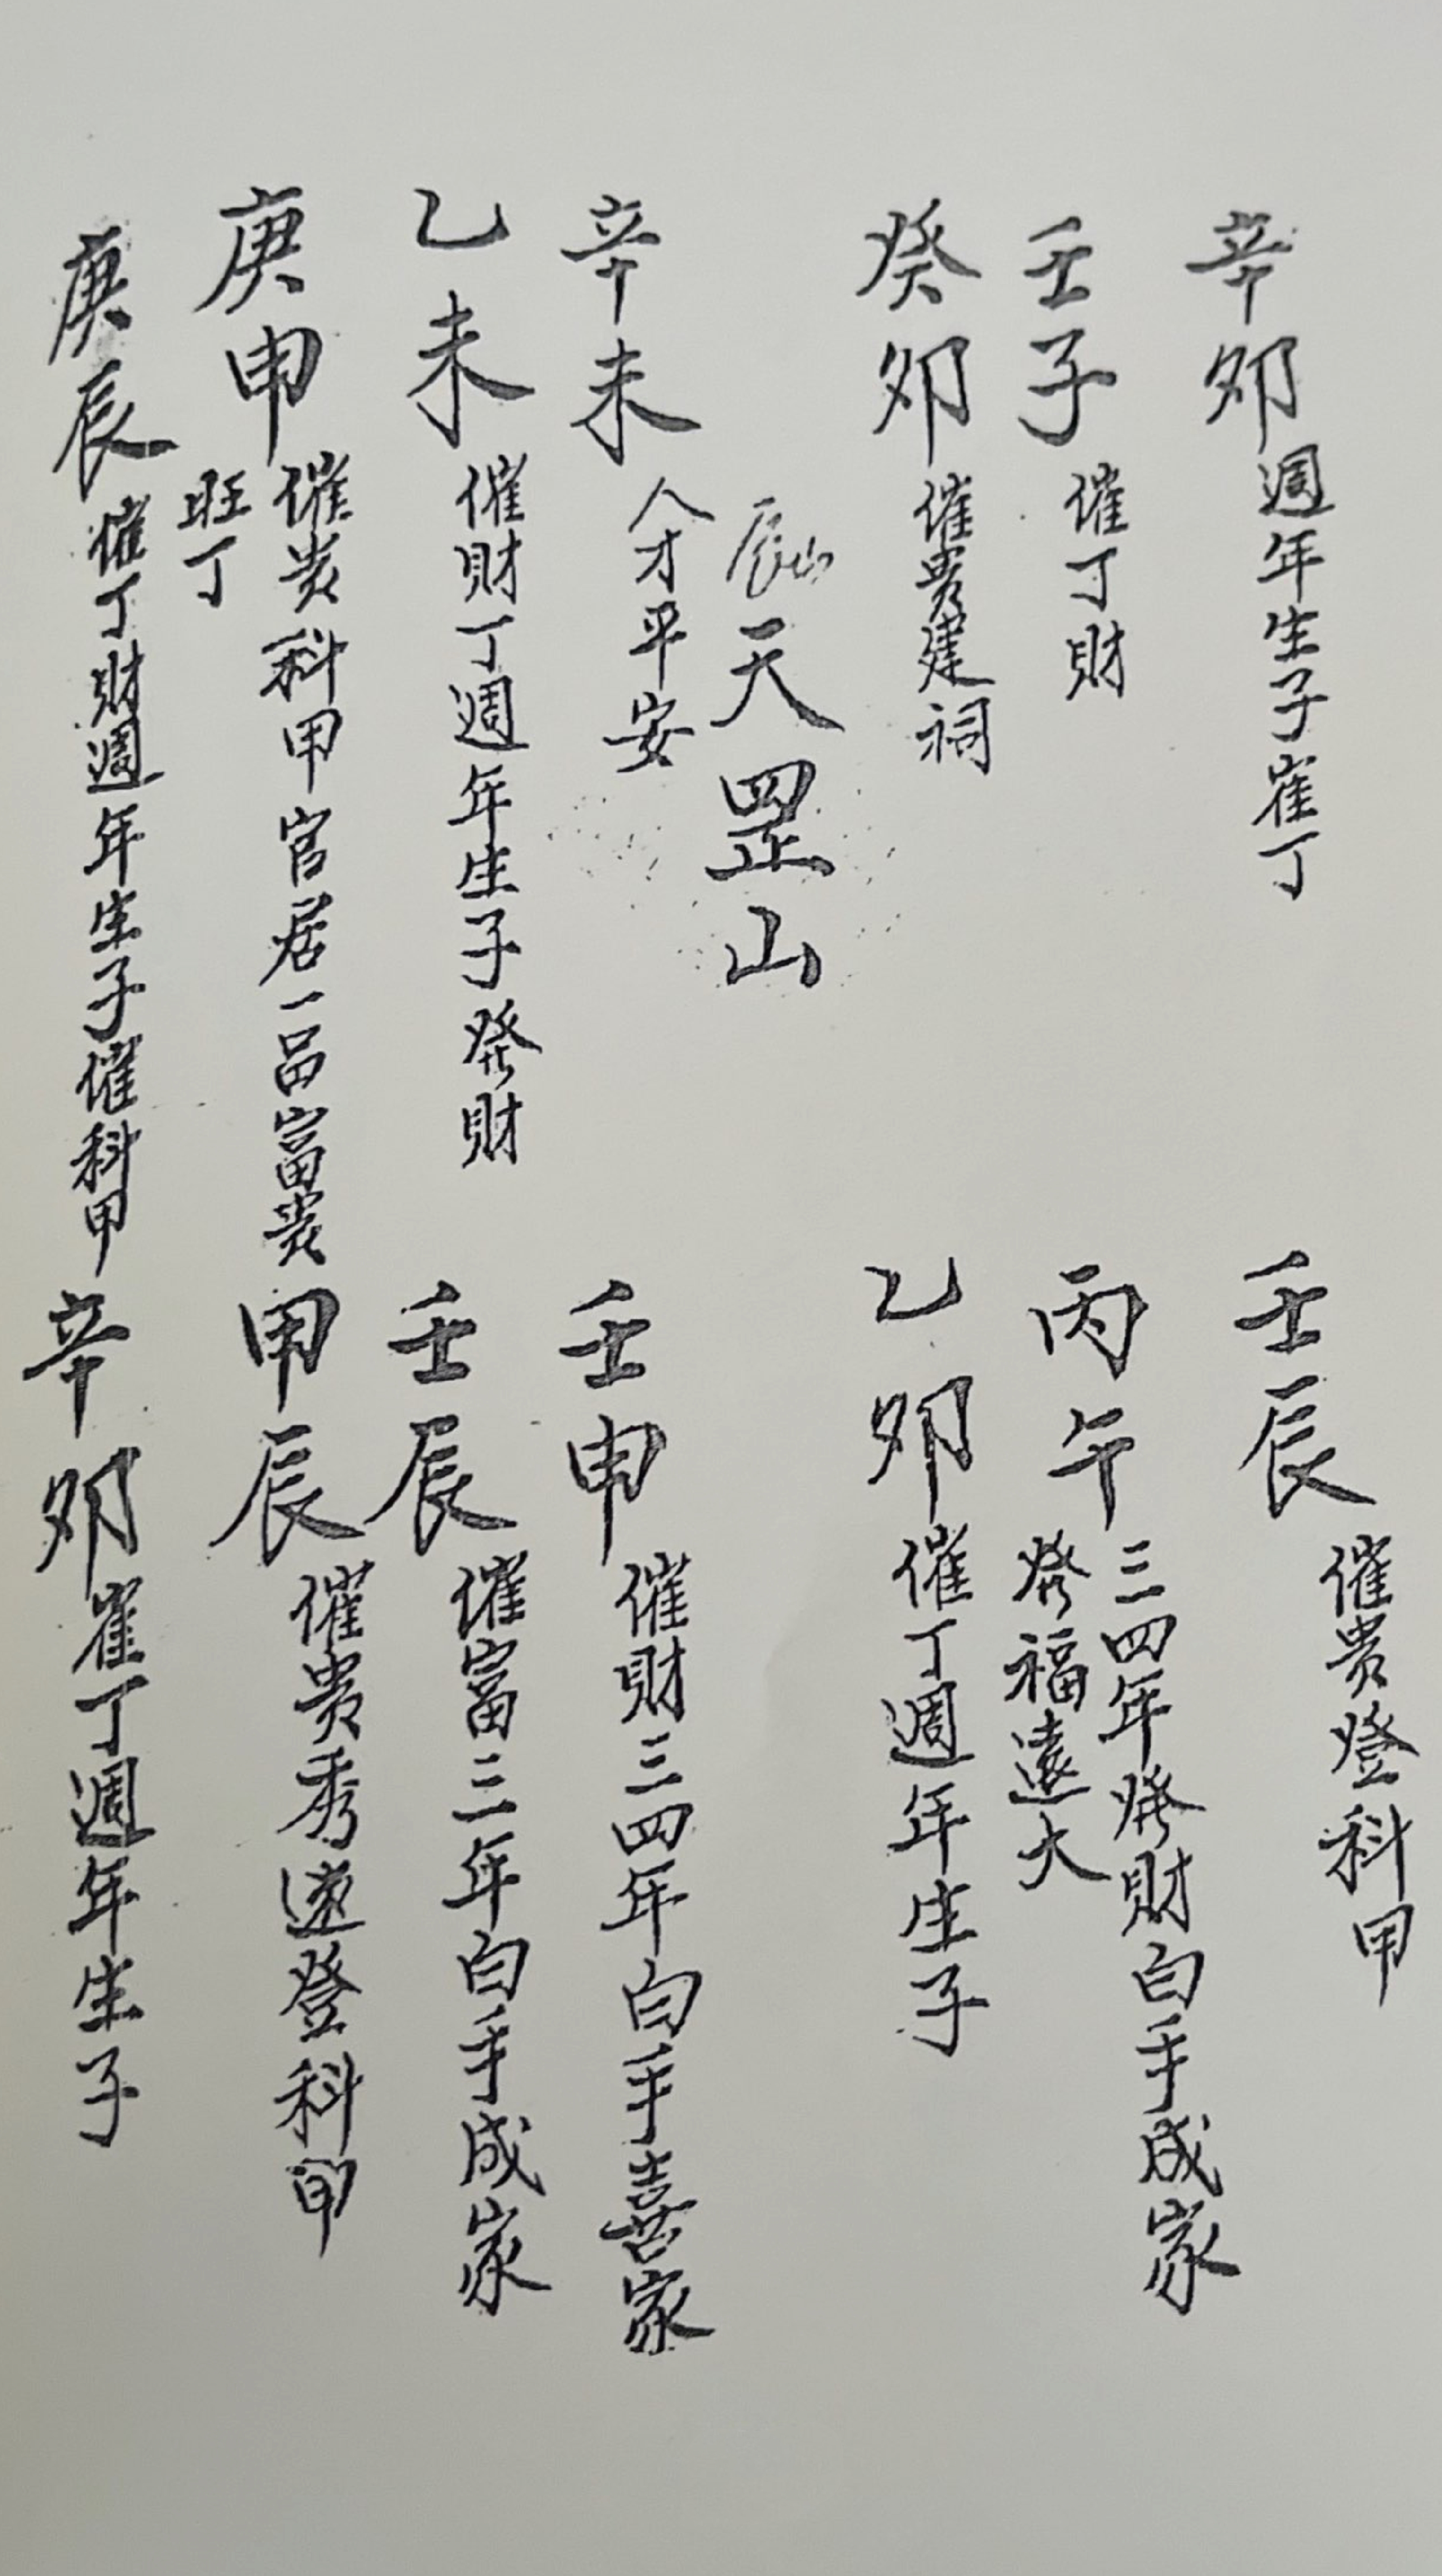 辛卯週年生子崔丁
壬辰催貴登科甲
壬子催丁財
丙午三四年發財白手成家
發福遠大
癸卯催貴建祠
乙卯催丁週年生子
辰山天罡山
辛未人才平安
壬申催財三四年白手喜家
乙未催財丁週年生子發財
壬辰催富三年白手成家
庚申催貴科甲官居一品富貴
旺丁
甲辰催貴秀速登科甲
庚辰催丁財週年生子催科甲
辛卯崔丁週年生子